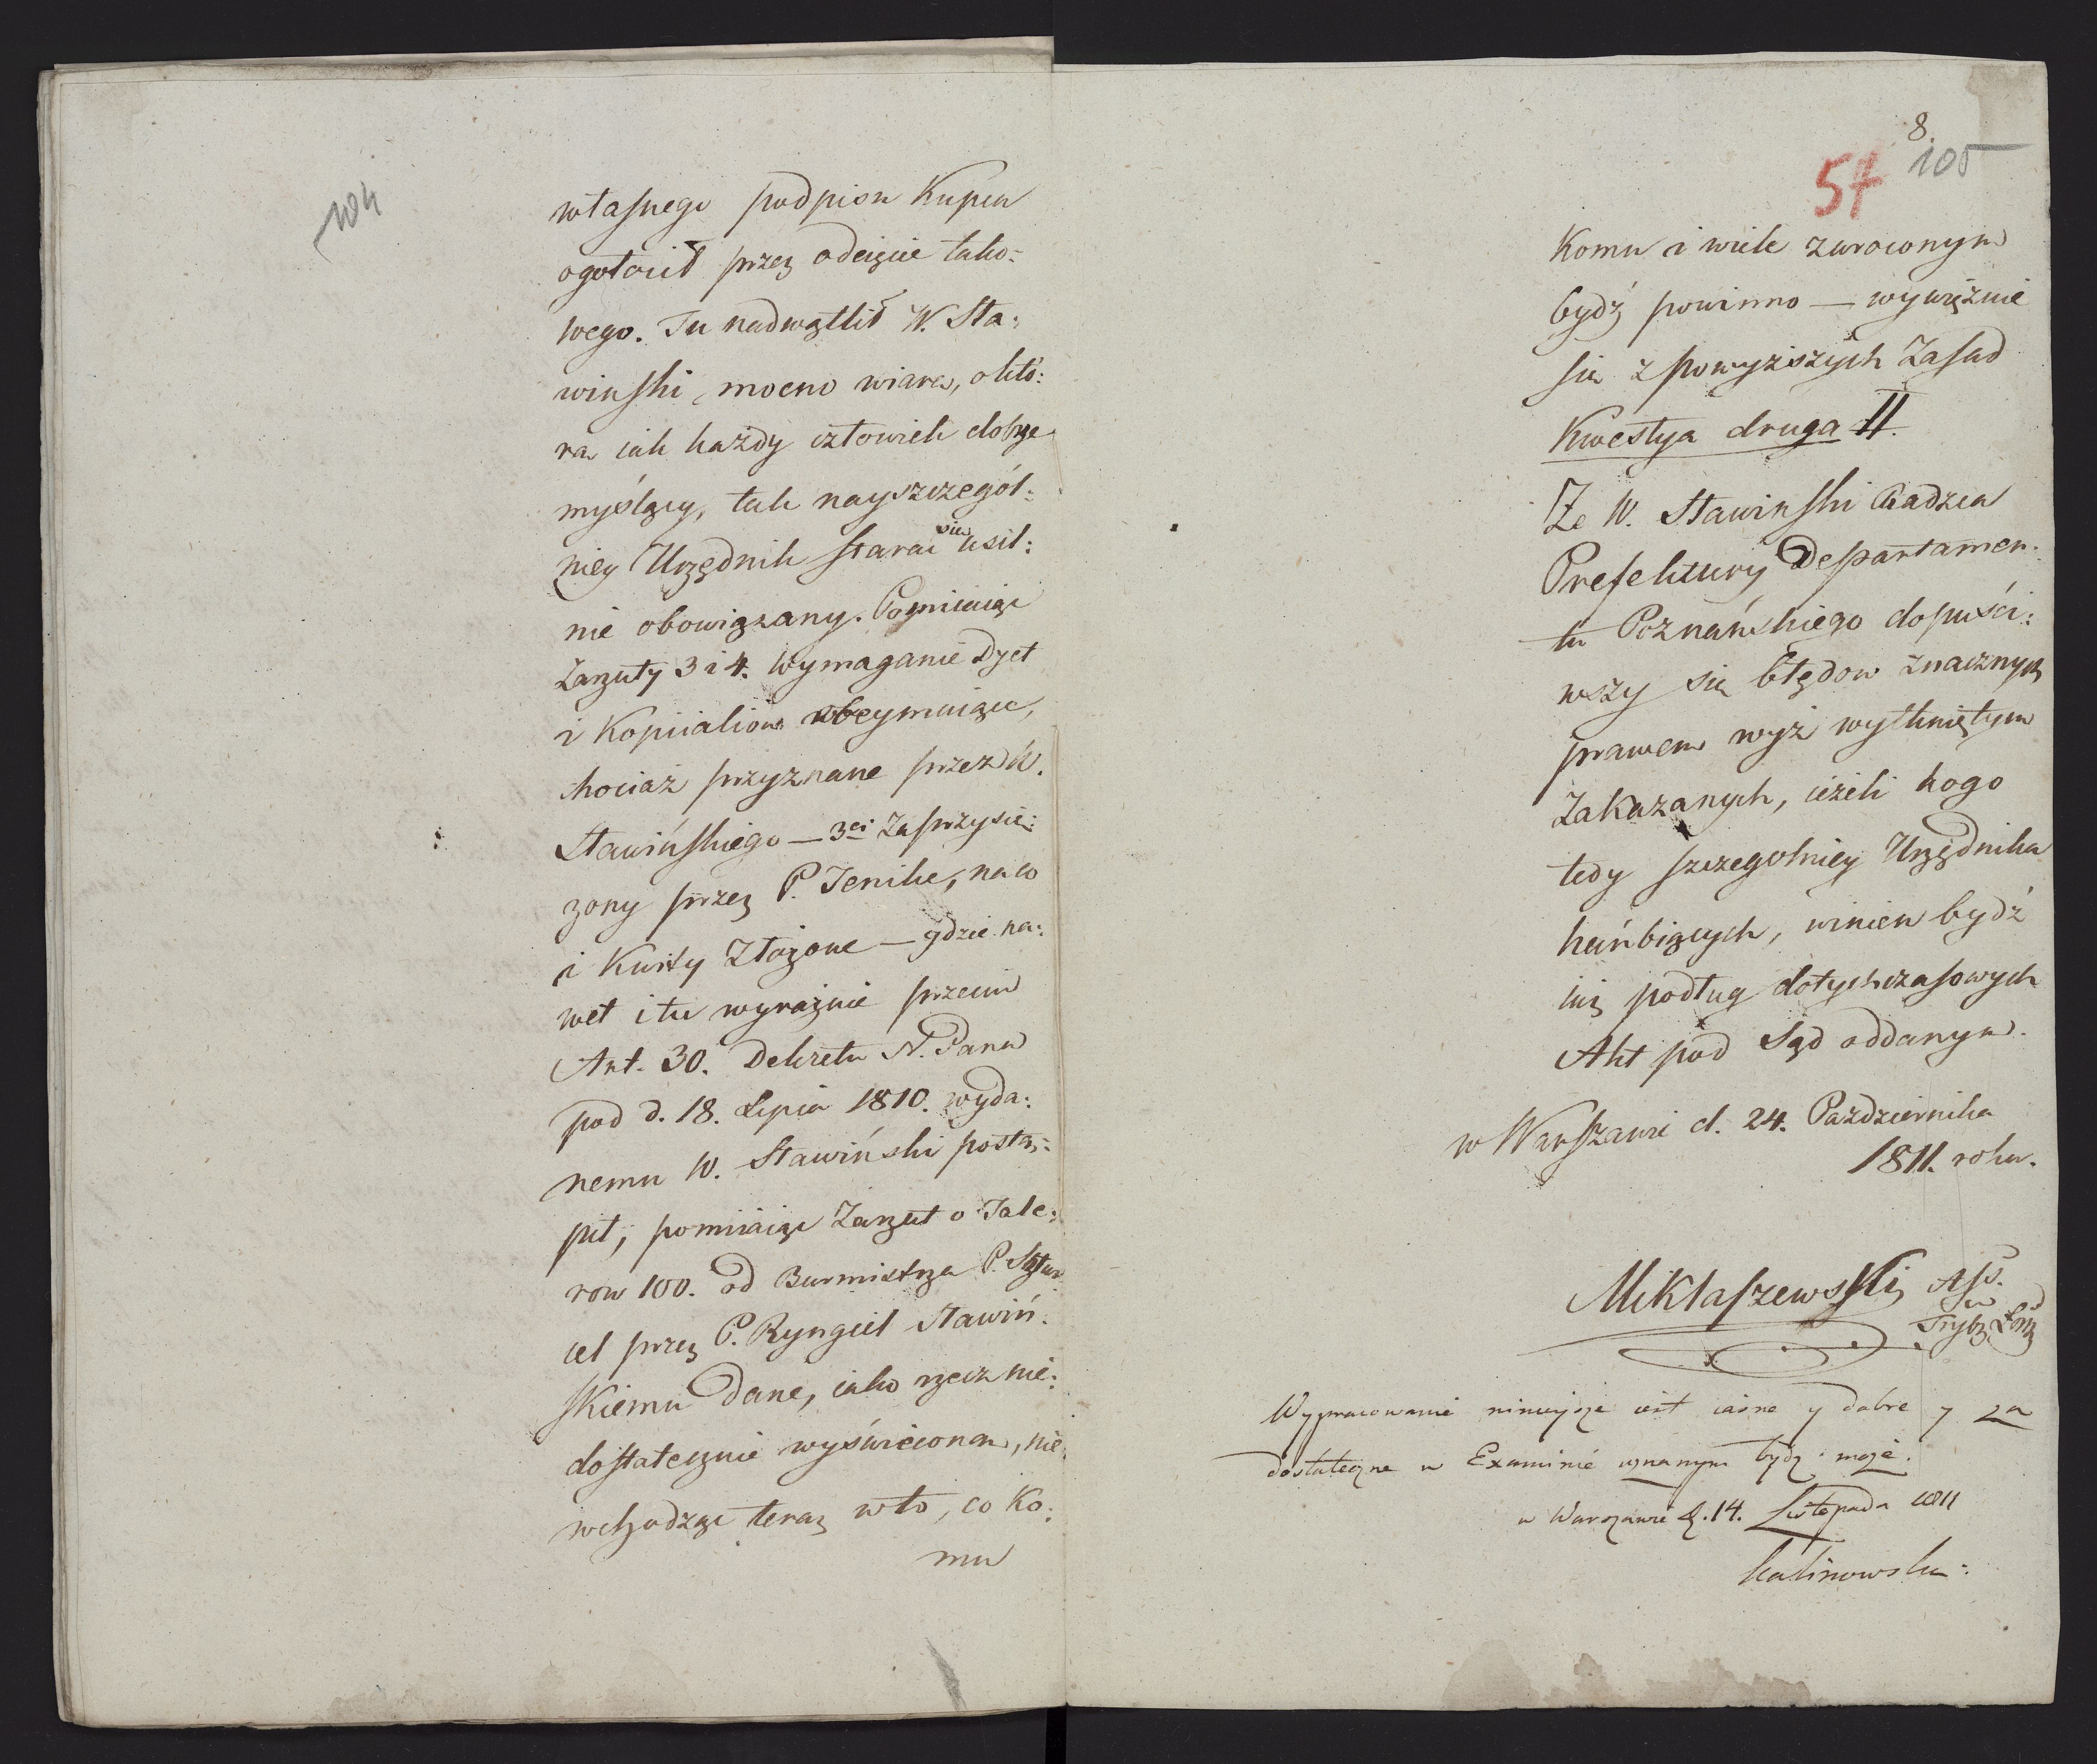 104
własnego podpisu Kupca
ogołocił przez odcięcie tako=
wego. Tu nadwątlił W. Sta:
winski mocno wiarę, o któ:
ra iak każdy człowiek dobrze
myślący, tak nayszczegól:
niey Urzędnik starać się usil:
nie obowiązany. Pominaiąc
Zarzuty 3 i 4. wymaganie Dyet
i Kopiialiów obeymuiące,
chociaż przyznane przez W.
Stawińskiego — 3ci Zaprzysię:
zony przez P. Jenike, na co
i Kwity Złożone — gdzie na:
wet i tu wyraźnie przeciw
Art. 30. Dekretu N. Pana
pod d. 18. Lipca 1810. wyda:
nemu W. Stawiński postą:
pił; pomiiaiąc Zarzut o Tale:
row 100. od Burmistrza P.
cel przez P. Ryngiel Stawiń:
skiemu Dane, iako rzecz nie:
dostatecznie wyświecona, nie
wchodząc teraz w to, co Ko:
mu
8.
57 105
Komu i wiele zwroconym
bydź powinno — wywięźnie
się z powyższych Zasad
Kwestya druga II.
Ze W. Stawinski Radzca
Prefektury Departamen:
tu Poznańskiego dopuści:
wszy się błędow znacznych
prawem wyż wytkniętym
Zakazanych, ieżeli kogo
tedy szczegolniey Urzędnika
hańbiących, winien bydź
iuż podług dotychczasowych
Akt pod Sąd oddanym.
w Warszawie d. 24. Pazdziernika
1811. roku.
Miklaszewski Ass.
Wypracowanie ninieysze iest iasne y dobre y za
dostateczne w Examinie uznanym bydź może.
w Warszawie d. 14. Listopada 1811
Kalinowski: